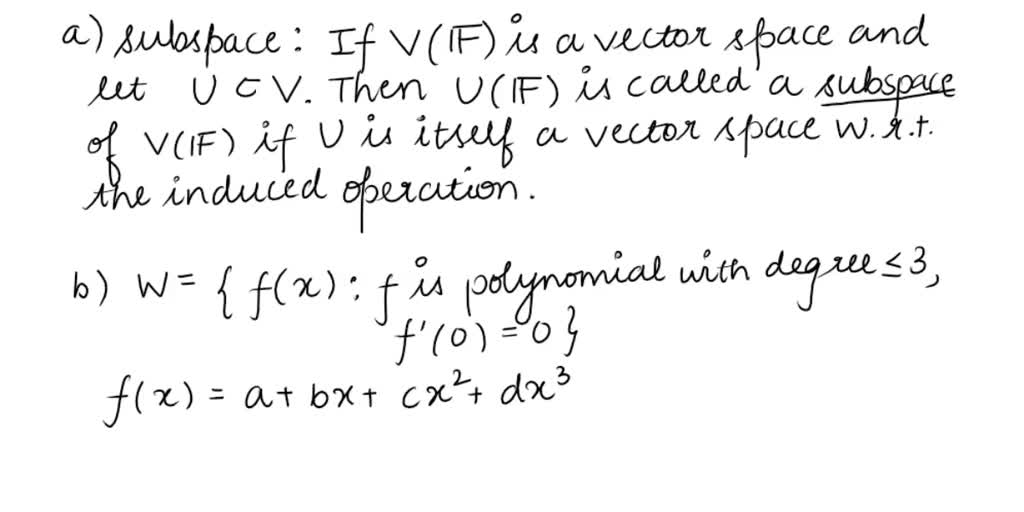 a) subspace: If V(𝔽) is a vector space and
let U ⊂ V. Then U(𝔽) is called a subspace
of V(𝔽) if U is itself a vector space w.r.t.
the induced operation.
b) W = { f(x): f is polynomial with degree ≤ 3,
f'(0) = 0 }
f(x) = a + bx + cx² + dx³